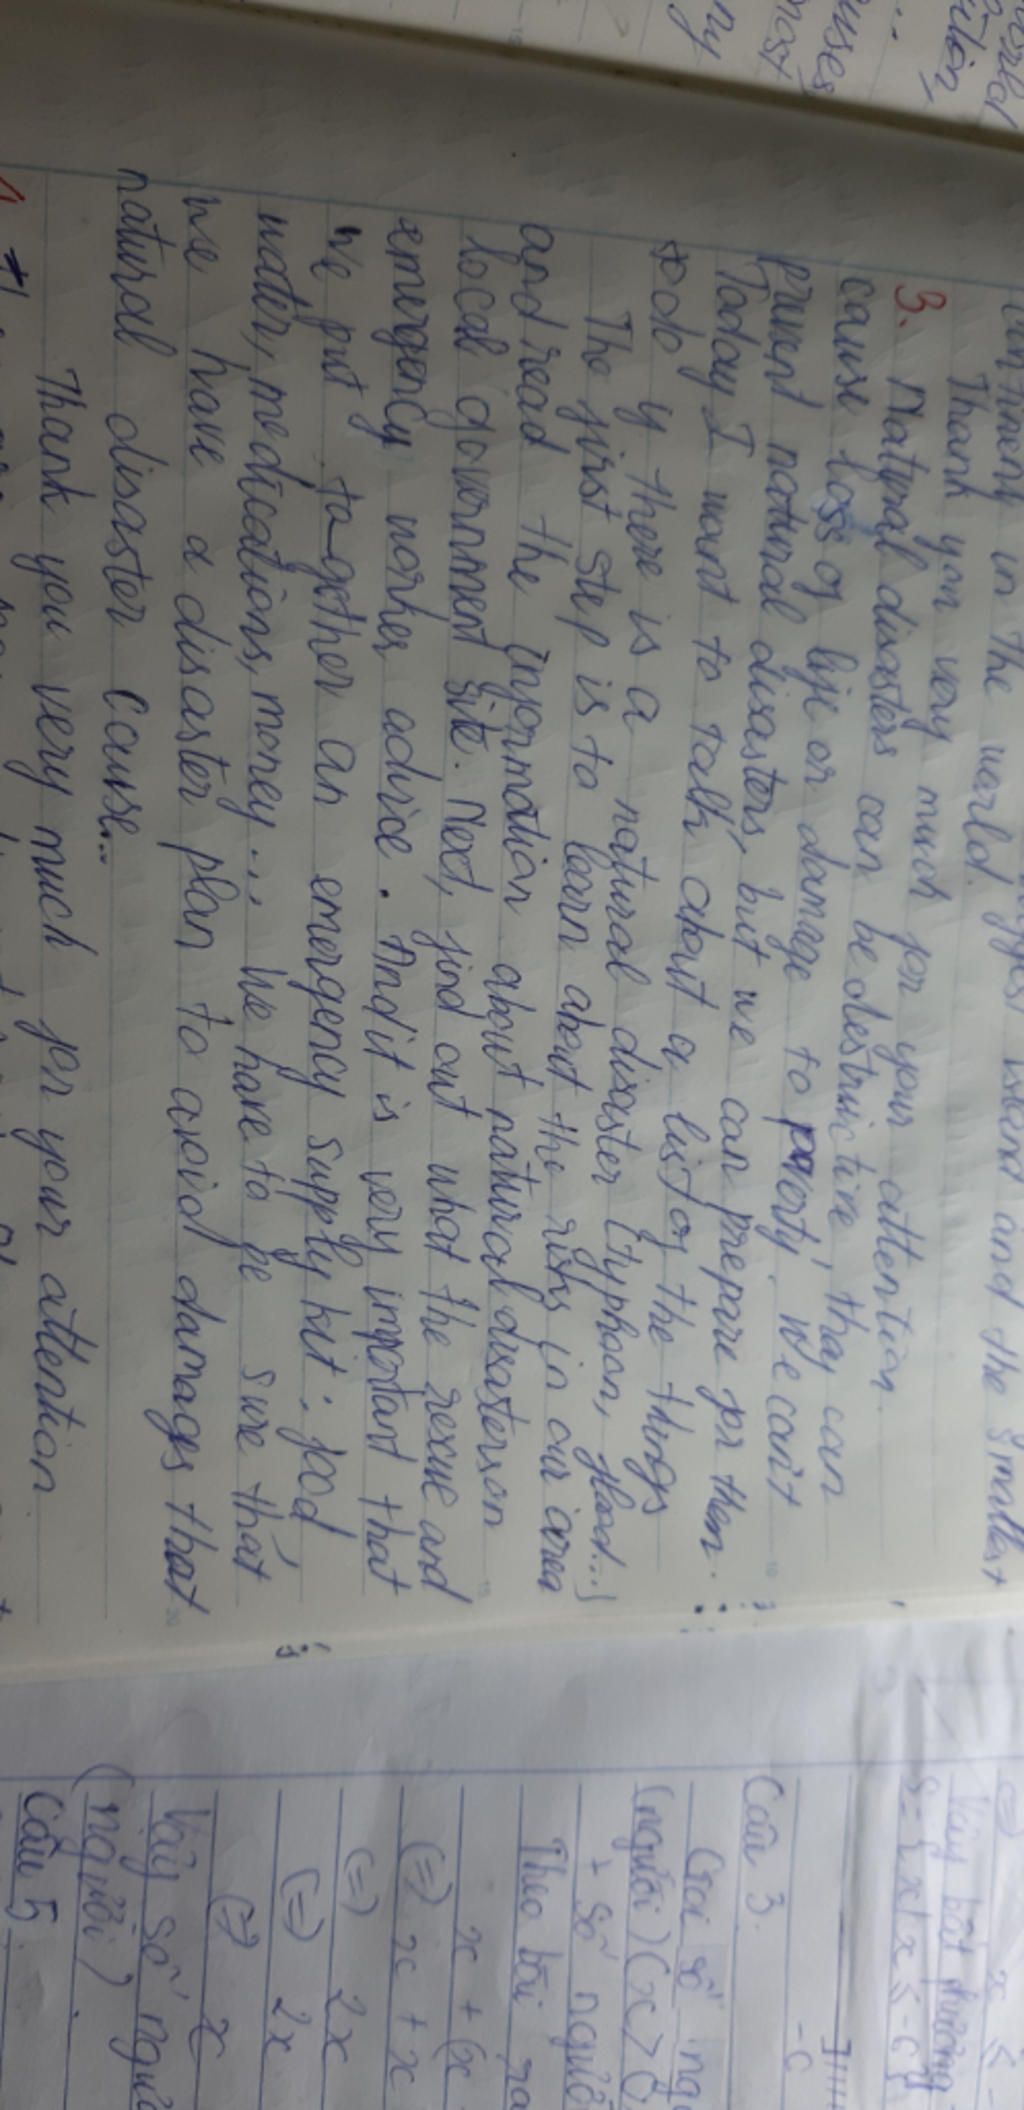 in the world.
Thank you very much for your attention.
3. Natural disasters can be destructive, they can
cause loss of life or damage to paorty. We can't
prevent natural disasters, but we can prepare for them.
Today I want to talk about a list of the things
todo if there is a natural disaster (typhoon, flood...)
The first step is to learn about the risks in our area
and read the information about natural disasters on
local government site. Next, find out what the rescue and
emergency worker advice. And it is very important that
we put together an emergency supply kit: food,
water, medications, money... We have to be sure that
we have a disaster plan to avoid damages that
natural disaster cause..
Thank you very much for your attention.
Vậy bất phương
S = { x | x ≤ -6 }
Câu 3.
Gọi số
(người) (x > 0)
+ Số người
Theo bài ra
x + (x
(=) x + x
(=) 2x
(=) 2x
(=) x
Vậy số người
(người).
Câu 5.